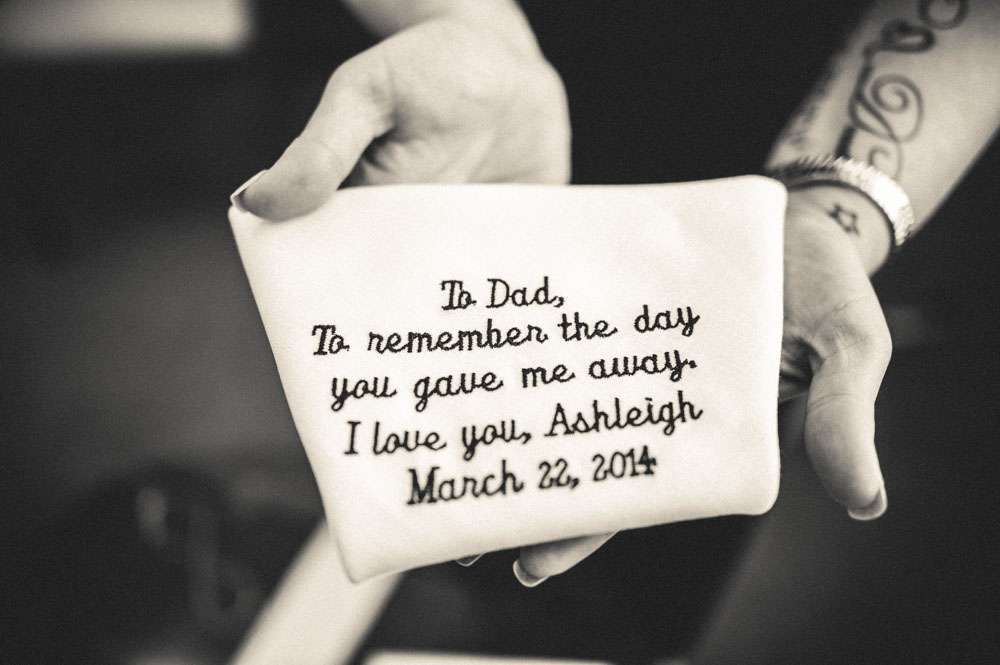 To Dad,
To remember the day
you gave me away.
I love you, Ashleigh
March 22, 2014